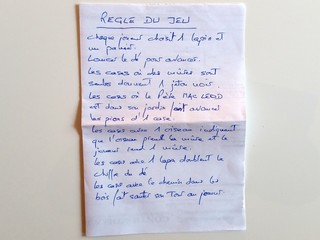 REGLE DU JEU
chaque joueur choisit 1 lapin et
un
Lancer le dé pour avancer.
Les cases où des mûres sont
donnent 1 jeton noir.
Les cases où le Père MAC GREGOR
est dans son jardin font avancer
les pions d'1 case.
Les cases avec 1 oiseau indiquent
que l'oiseau prend la mûre et le
joueur rend 1 mûre.
Les cases avec 1 lapin doublent le
chiffre du dé
Les cases avec le chemin dans les
bois fait sauter son Tour au joueur.